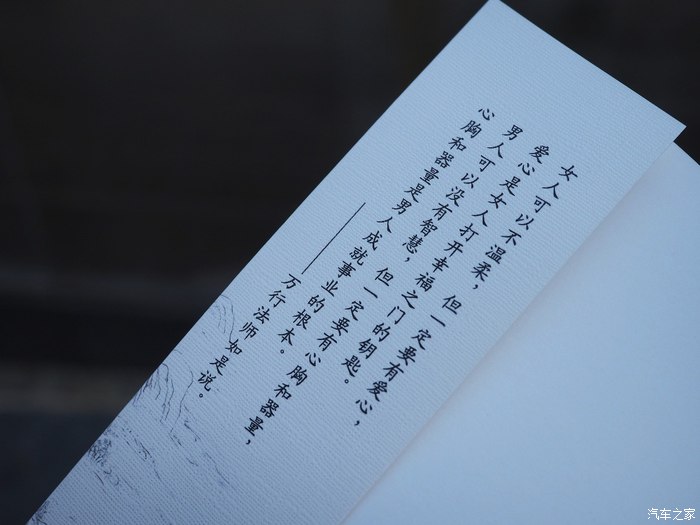 女人可以不温柔，但一定要有爱心，
爱心是女人打开幸福之门的钥匙。
男人可以没有智慧，但一定要有心胸和器量，
心胸和器量是男人成就事业的根本。
——万行法师如是说。
汽车之家